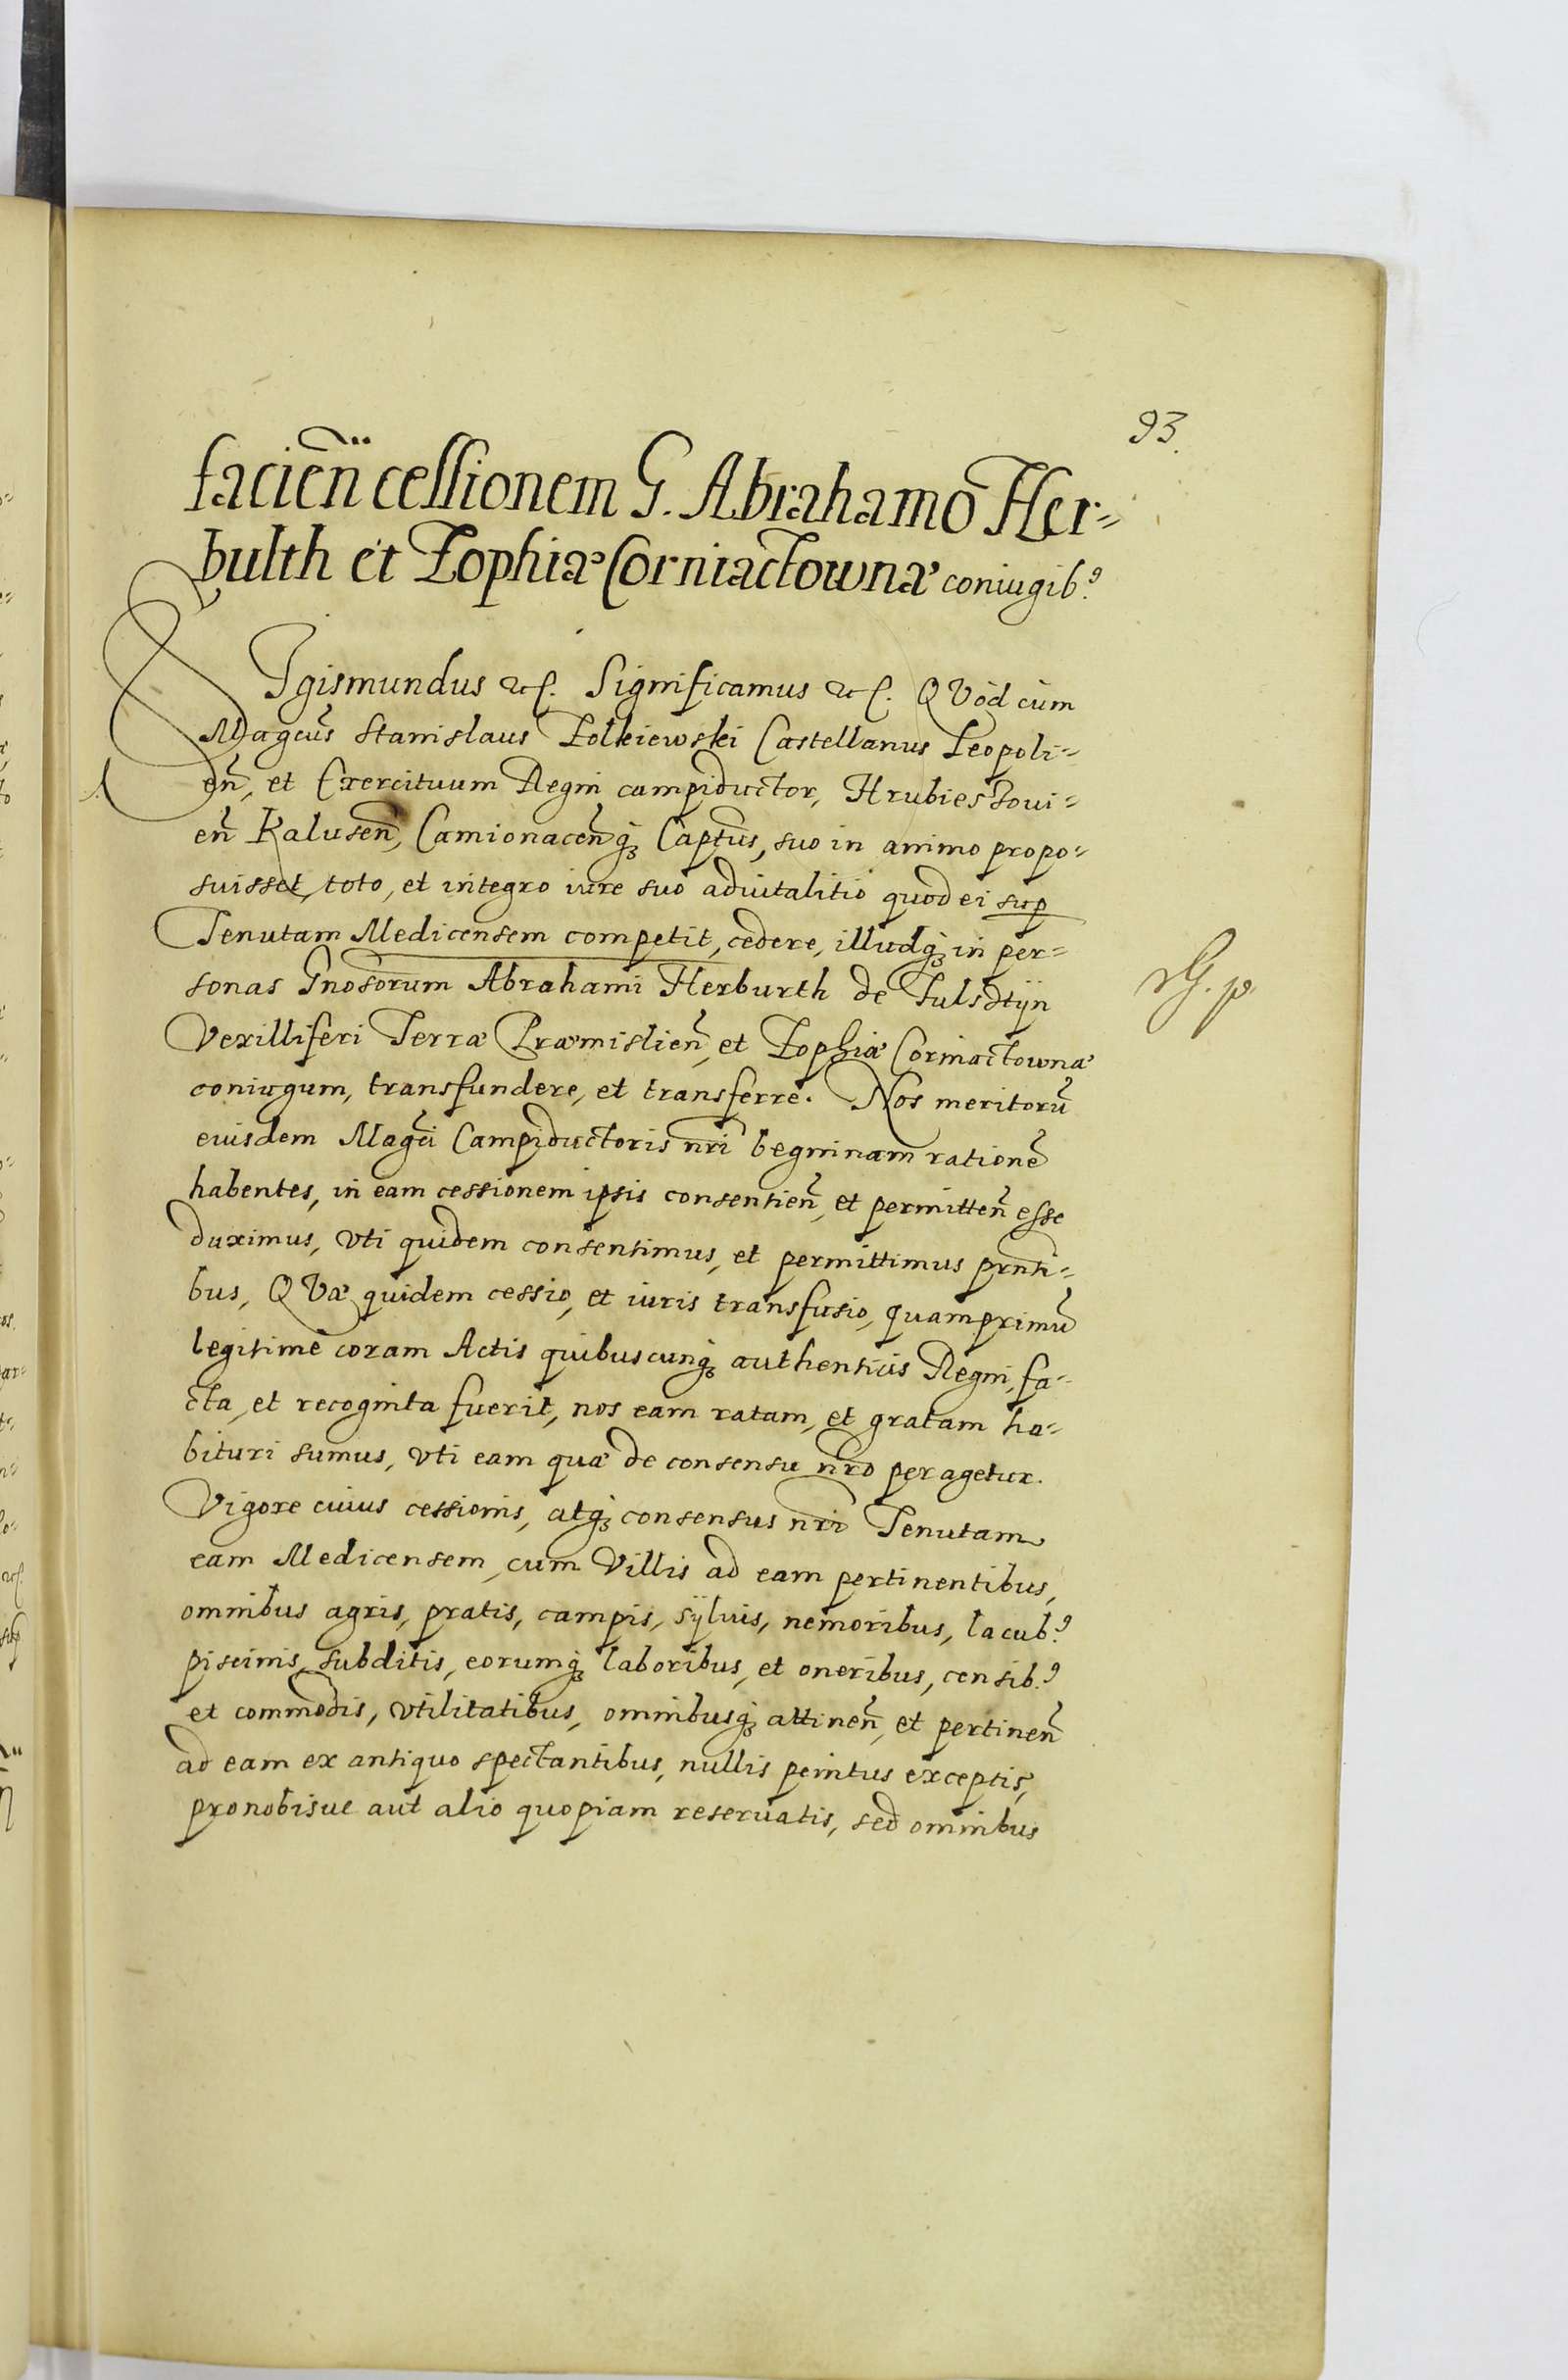 93.
facien̄ cessionem G. Abrahamo Her=
bulth et Zophiæ Corniactownæ coniugib9
SIgismundus etc. Significamus etc. QVòd cùm
Magcūs Stanislaus Zolkiewski Castellanus Leopoli=
en̄, et Exercituum Regni campiductor, Hrubiestoui=
en̄ Kalusen̄, Camionacen̄q₃ Captūs, suo in animo propo=
suisset, toto, et integro iure suo aduitalitio quod ei sup
Tenutam Medicensem competit, cedere, illudq₃ in per=
sonas Gnosorum Abrahami Herburth de Fulsdtÿn
Vexilliferi Terræ Præmislien̄, et Zophiæ Corniactownæ
coniugum, transfundere, et transferre. Nos meritorū
eiusdem Magci Campiductoris nri begninam rationē
habentes, in eam cessionem ipsis consentien̄, et permitten̄ esse
duximus, vti quidem consentimus, et permittimus prnti=
bus, QVæ quidem cessio, et iuris transfusio, quamprimū
legitimè coram Actis quibuscunq₃ authenticis Regni, fa=
cta, et recognita fuerit, nos eam ratam, et gratam ha=
bituri sumus, vti eam quæ de consensu nro peragetur.
Vigore cuius cessionis, atq₃ consensus nri Tenutam
eam Medicensem, cum Villis ad eam pertinentibus,
omnibus agris, pratis, campis, sÿluis, nemoribus, lacub9
piscinis, subditis, eorumq₃ laboribus, et oneribus, censib9
et commodis, vtilitatibus, omnibusq₃ attinen̄, et pertinen̄
ad eam ex antiquo spectantibus, nullis penitus exceptis,
pro nobisue aut alio quopiam reseruatis, sed omnibus